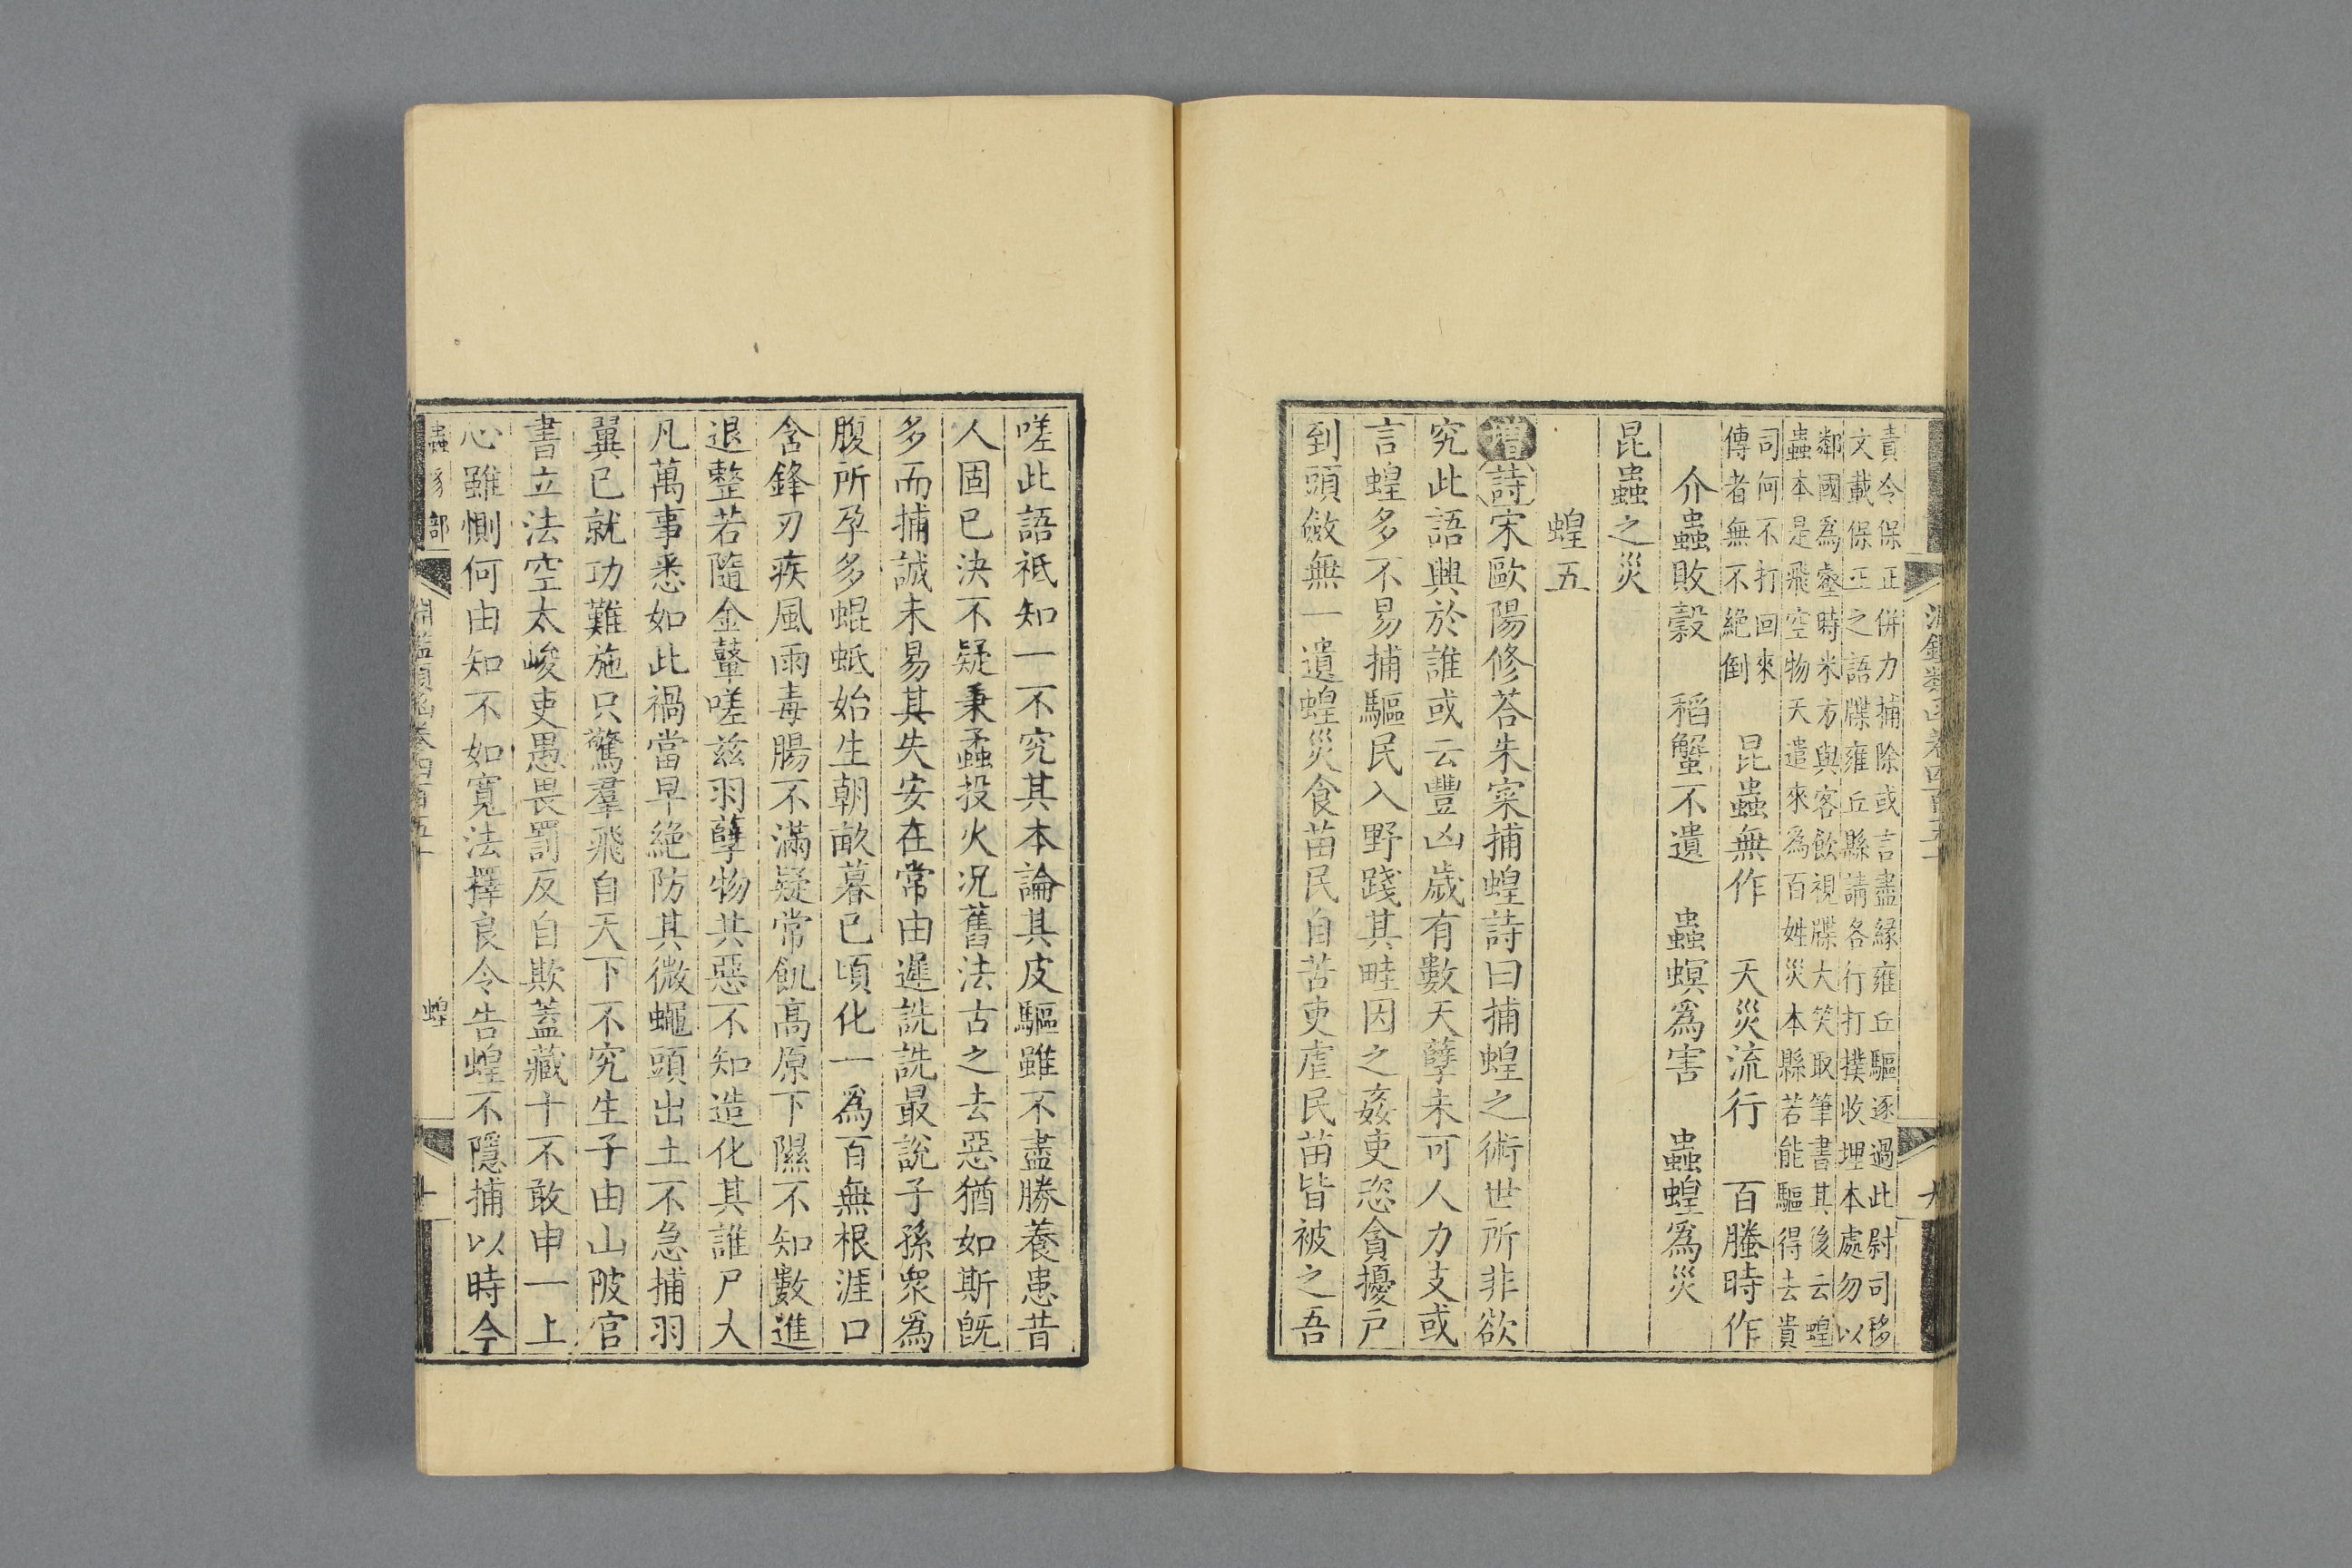 淵鑑類函卷四百五十
九
責令保正併力捕除或言盡緣雍丘驅逐過此尉司移
文載保正之語牒雍丘縣請各行打撲收埋本處勿以
鄰國為壑時米方與客飲視牒大笑取筆書其後云蝗
蟲本是飛空物天遣來為百姓災本縣若能驅得去貴
司何不打回來
傳者無不絕倒　昆蟲無作　天災流行　百螣時作
介蟲敗穀　稻蟹不遺　蟲螟爲害　蟲蝗爲災
昆蟲之災
蝗五
增詩宋歐陽修荅朱寀捕蝗詩曰捕蝗之術世所非欲
究此語興於誰或云豐凶歲有數天孽未可人力支或
言蝗多不易捕驅民入野踐其畦因之姦吏恣貪擾戸
到頭斂無一遺蝗災食苗民自苦吏虐民苗皆被之吾
嗟此語祗知一不究其本論其皮驅雖不盡勝養患昔
人固已決不疑秉蟊投火况舊法古之去惡猶如斯旣
多而捕誠未易其失安在常由遲詵詵最說子孫衆爲
腹所孕多蜫蚳始生朝畝暮已頃化一爲百無根涯口
含鋒刃疾風雨毒腸不滿疑常飢高原下隰不知數進
退整若隨金鼙嗟兹羽孽物共惡不知造化其誰尸大
凡萬事悉如此禍當早絶防其微蠅頭出土不急捕羽
翼已就功難施只驚羣飛自天下不究生子由山陂官
書立法空太峻吏愚畏罰反自欺蓋藏十不敢申一上
心雖惻何由知不如寬法擇良令告蝗不隱捕以時今
蟲豸部
淵鑑類函卷四百五十
蝗
十